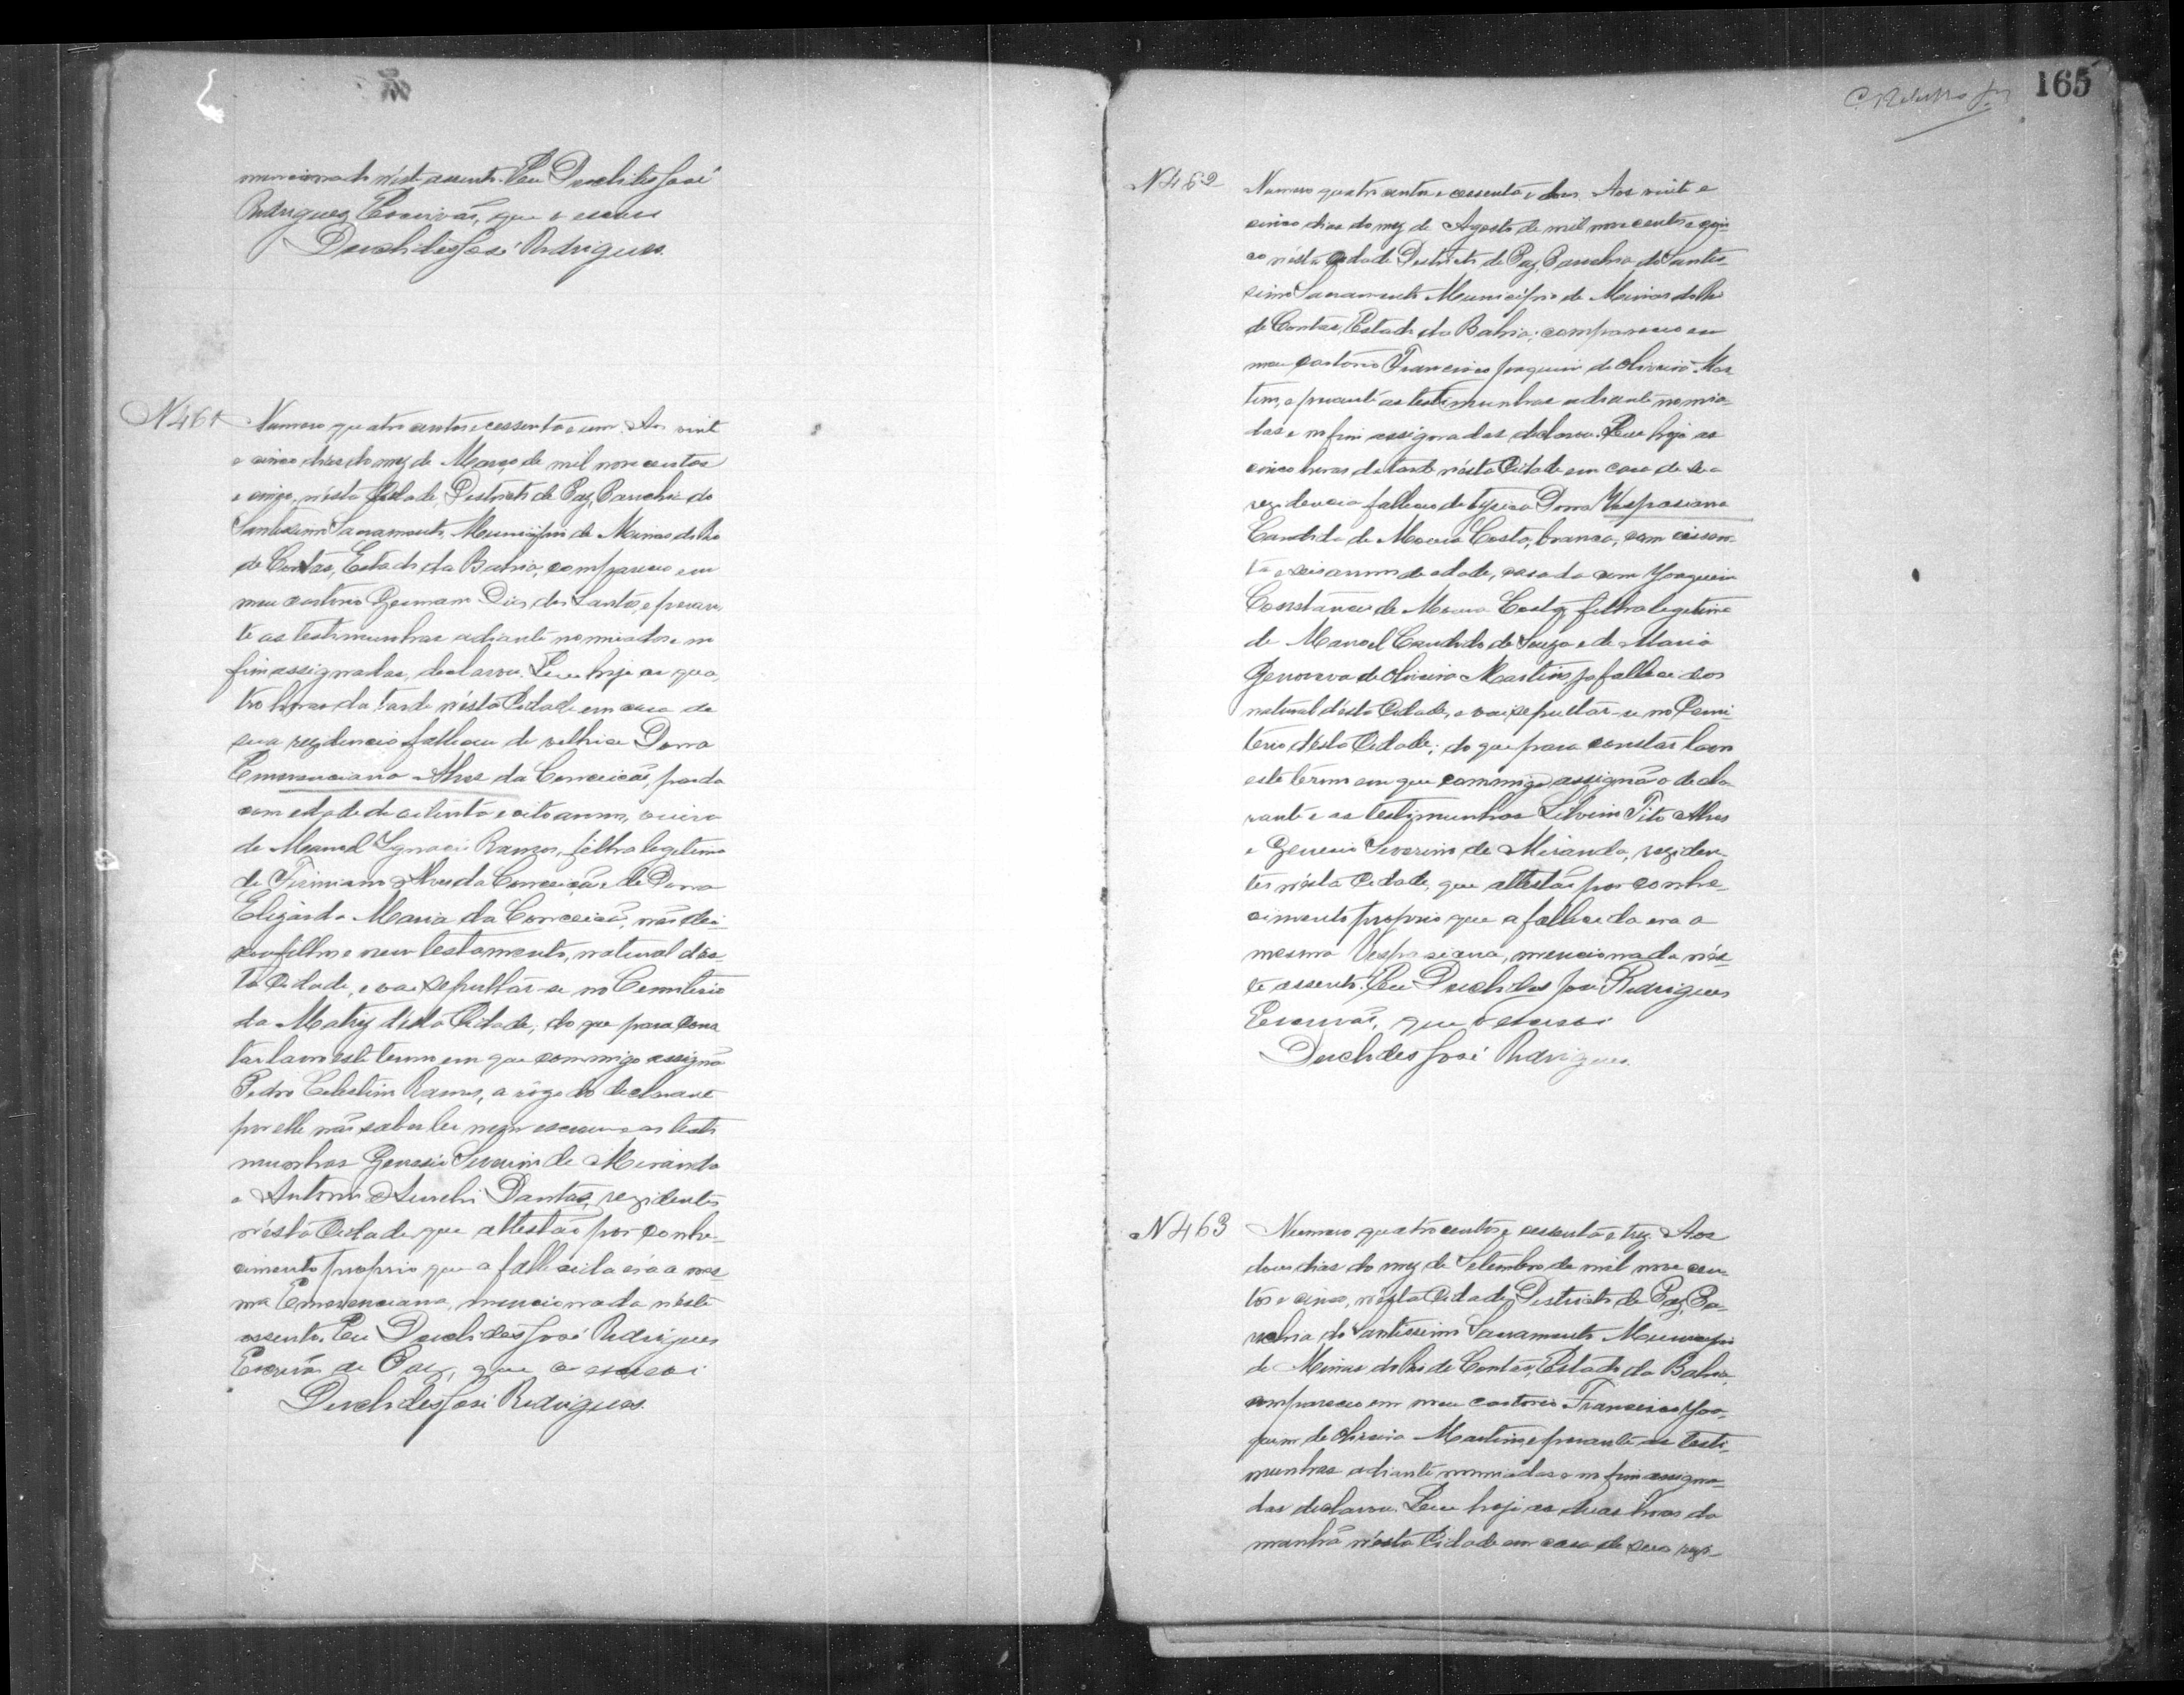 mencionado n'este assento. Eu Duchildes José
Rodrigues Escrivão, que o escrevi
Duchildes José Rodrigues.
N 461 Numero quatro centos e cessenta e um. Aos vinte
e cinco dias do mez de Março de mil nove centos
e cinco, n'esta Cidade, Districto de Paz, Parochia do
Santissimo Sacramento, Municipio de Minas do Rio
de Contas, Estado da Bahia, compareceu em
meu cartorio Germano Dias dos Santos, e peran-
te as testimunhas adiante nomiadas e no
fim assignadas, declarou. Que hoje as qua-
tro horas da tarde n'esta Cidade em casa de
sua rezidencia falleceu de velhice Dona
Emerenciana Alves da Conceição, parda
com edade de oitenta e oito annos, viuva
de Manoel Ignacio Ramos, filha legitima
de Firmiano Alves da Conceição e de Dona
Maria da Conceição, não dei-
xou filhos e nem testamento, natural d'es-
ta Cidade, e vae sepultar-se no Cemiterio
da Matriz d'esta Cidade; do que para cons-
tar lavro este termo em que commigo assigna
Pedro Celestino Ramos, a rôgo do declarante
por elle não saber ler nem escrever e as testi-
munhas Genesio Severino de Miranda
e Antonio Aurelio Dantas, rezidentes
n'esta Cidade que attestão por conhe-
cimento proprio que a fallecida era a mes-
ma Emerenciana, mencionada n'este
assento. Eu Duchildes José Rodrigues
Escrivão de Paz, que o escrevi
Duchildes José Rodrigues.
165
N 462 Numero quatro centos e cessenta e dous. Aos vinte e
cinco dias do mez de Agosto de mil nove centos e cin-
co n'esta Cidade Districto de Paz, Parochia do Santis-
simo Sacramento Municipio de Minas do Rio
de Contas, Estado da Bahia; compareceu em
meu cartorio Francisco Joaquim de Oliveira Mar-
tins, e perante as testimunhas adiante nomia-
das e no fim assignadas declarou. Que hoje as
cinco horas da tarde n'esta Cidade em casa de sua
rezidencia falleceu de tysica Dona Vespasiana
Candida de Moura Costa, branca, com cessen-
ta e seis annos de edade, casada com Joaquim
Constancio de Moura Costa, filha legitima
de Manoel Candido de Souza e de Maria
Genoveva de Oliveira Martins, ja fallecidos
natural d'esta Cidade, e vae sepultar-se no Cemi-
terio d'esta Cidade; do que para constar lavro
este termo em que commigo assignão o decla-
rante e as testimunhas Silvino Tito Alves
e Genesio Severino de Miranda, reziden-
tes n'esta Cidade, que attestão por conhe-
cimento proprio que a fallecida era a
mesma Vespasiana, mencionada n'es-
te assento. Eu Duchildes José Rodrigues
Escrivão, que o escrevi
Duchildes José Rodrigues.
N 463 Numero quatro centos e cessenta e trez. Aos
dous dias do mez de Setembro de mil nove cen-
tos e cinco, n'esta Cidade, Districto de Paz, Pa-
rochia do Santissimo Sacramento Municipio
de Minas do Rio de Contas, Estado da Bahia,
compareceu em meu cartorio Francisco Joa-
quim de Oliveira Martins e perante as testi-
munhas adiante nomiadas e no fim assigna-
das declarou. Que hoje as duas horas da
manhã n'esta Cidade em casa de sua rezi-